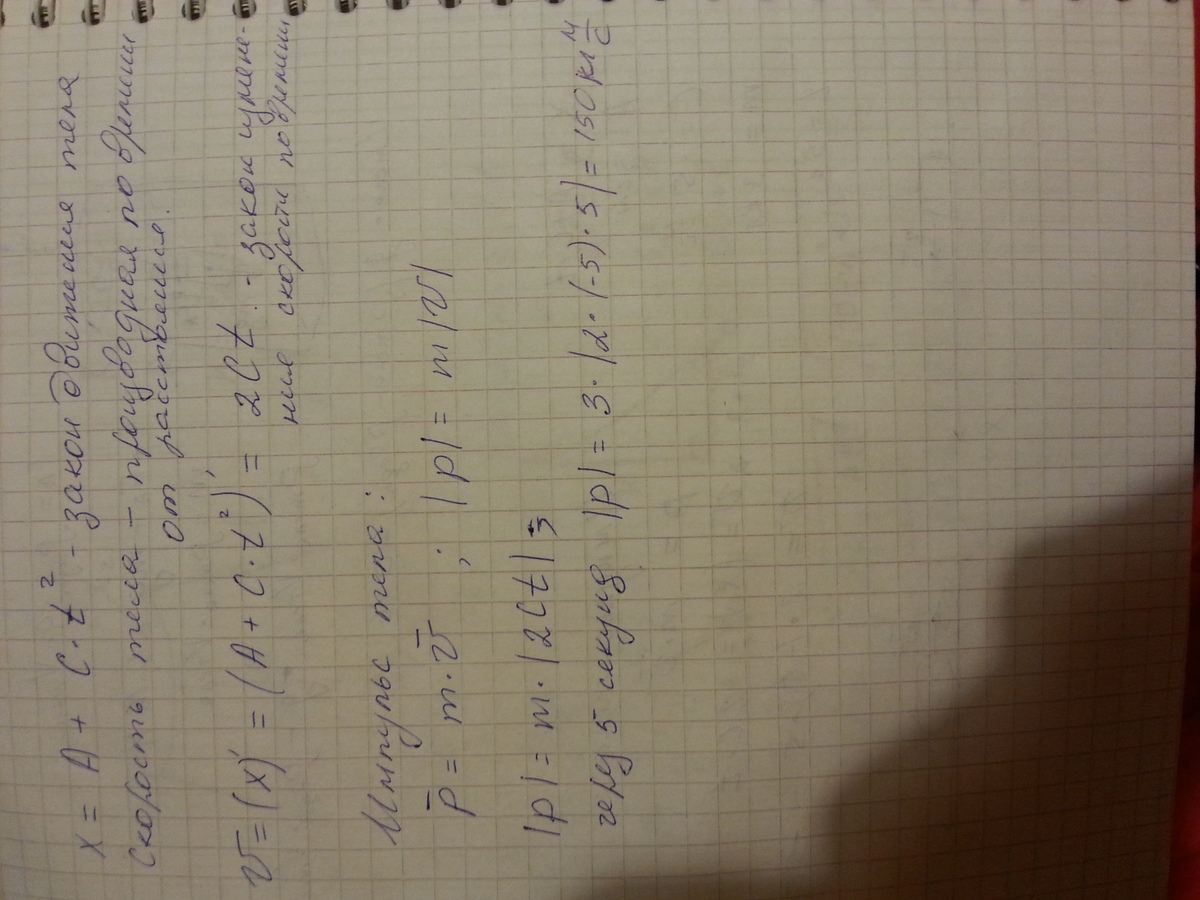 x = A + C · t² - закон движения тела
Скорость тела – производная по времени
от расстояния.
v = (x)' = (A + C · t²)' = 2Ct. - закон измене-
ния скорости по времени
Импульс тела :
p̅ = m · v̅ ; |p| = m |v|
|p| = m · |2Ct|
через 5 секунд |p| = 3 · |2 · (-5) · 5| = 150 кг м/с